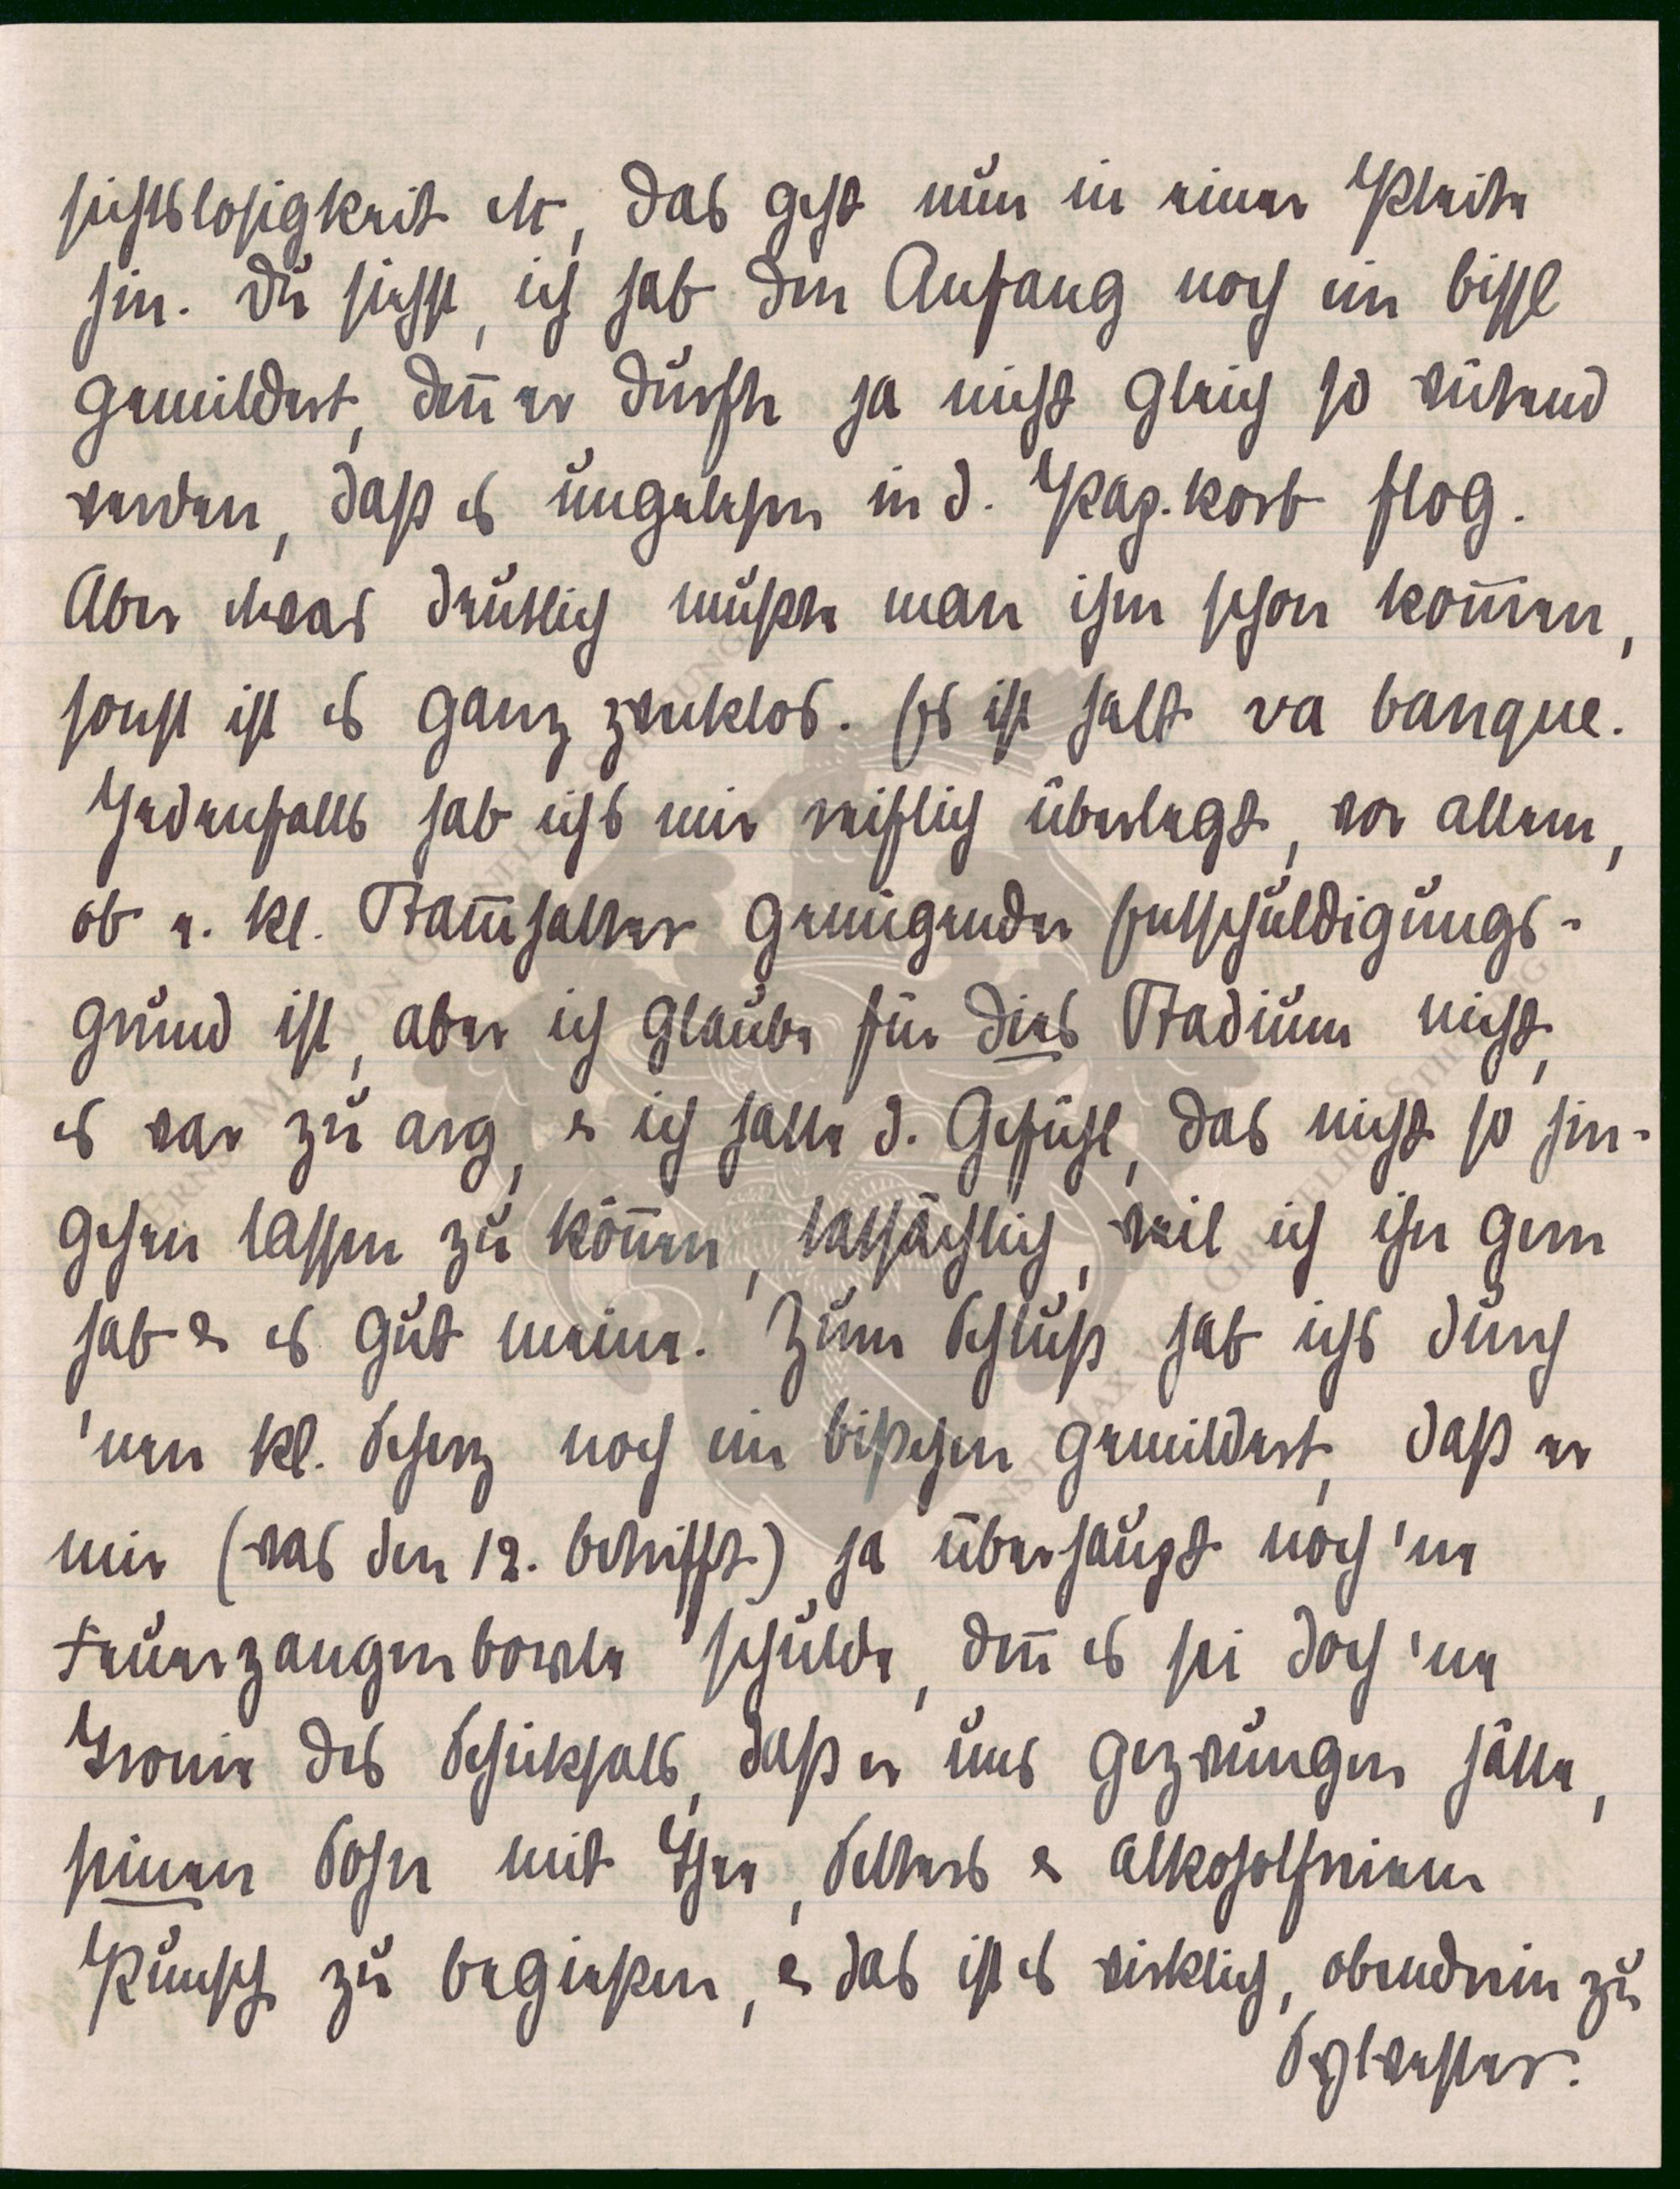 sichtslosigkeit etc, das geht nun in einer Pleite
hin. Du siehst, ich hab den Anfang noch ein bissl
gemildert, den̄ er durfte ja nicht gleich so wütend
werden, daß es ungelesen in d. Pap.korb flog.
Aber etwas deutlich mußte man ihm schon kom̄en,
sonst ist es ganz zwecklos. Es ist halt va banque.
Jedenfalls hab ichs mir reiflich überlegt, vor allem,
ob e. kl. Stam̄halter genügender Entschuldigungs-
grund ist, aber ich glaube für dies Stadium nicht,
es war zu arg, & ich hatte d. Gefühl, das nicht so hin-
gehen lassen zu kön̄en, tatsächlich, weil ich ihn gern
hab & es gut meine. Zum Schluß hab ichs durch
'nen kl. Scherz noch ein bißchen gemildert, daß er
mir (was den 12. betrifft) ja überhaupt noch 'ne
Feuerzangenbowle schulde, den̄ es sei doch 'ne
Ironie des Schicksals, daß er uns gezwungen hätte,
seinen Sohn mit Thee, Selters & alkoholfreiem
Punsch zu begießen, & das ist es wirklich, obendrein zu
Sylvester.
ERNST MAX VON GRUNELIUS STIFTUNG
ERNST MAX VON GRUNELIUS STIFTUNG